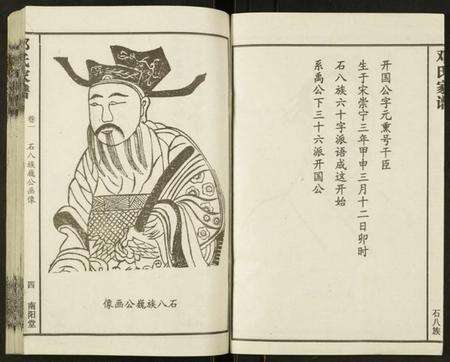 邓氏家谱
开国公字元熏号干臣
生于宋崇宁三年甲申三月十二日卯时
石八族六十字派语成这开始
系禹公下三十六派开国公
石八族
石八族巍公画像
邓氏家谱
卷一
石八族巍公画像
四
南阳堂